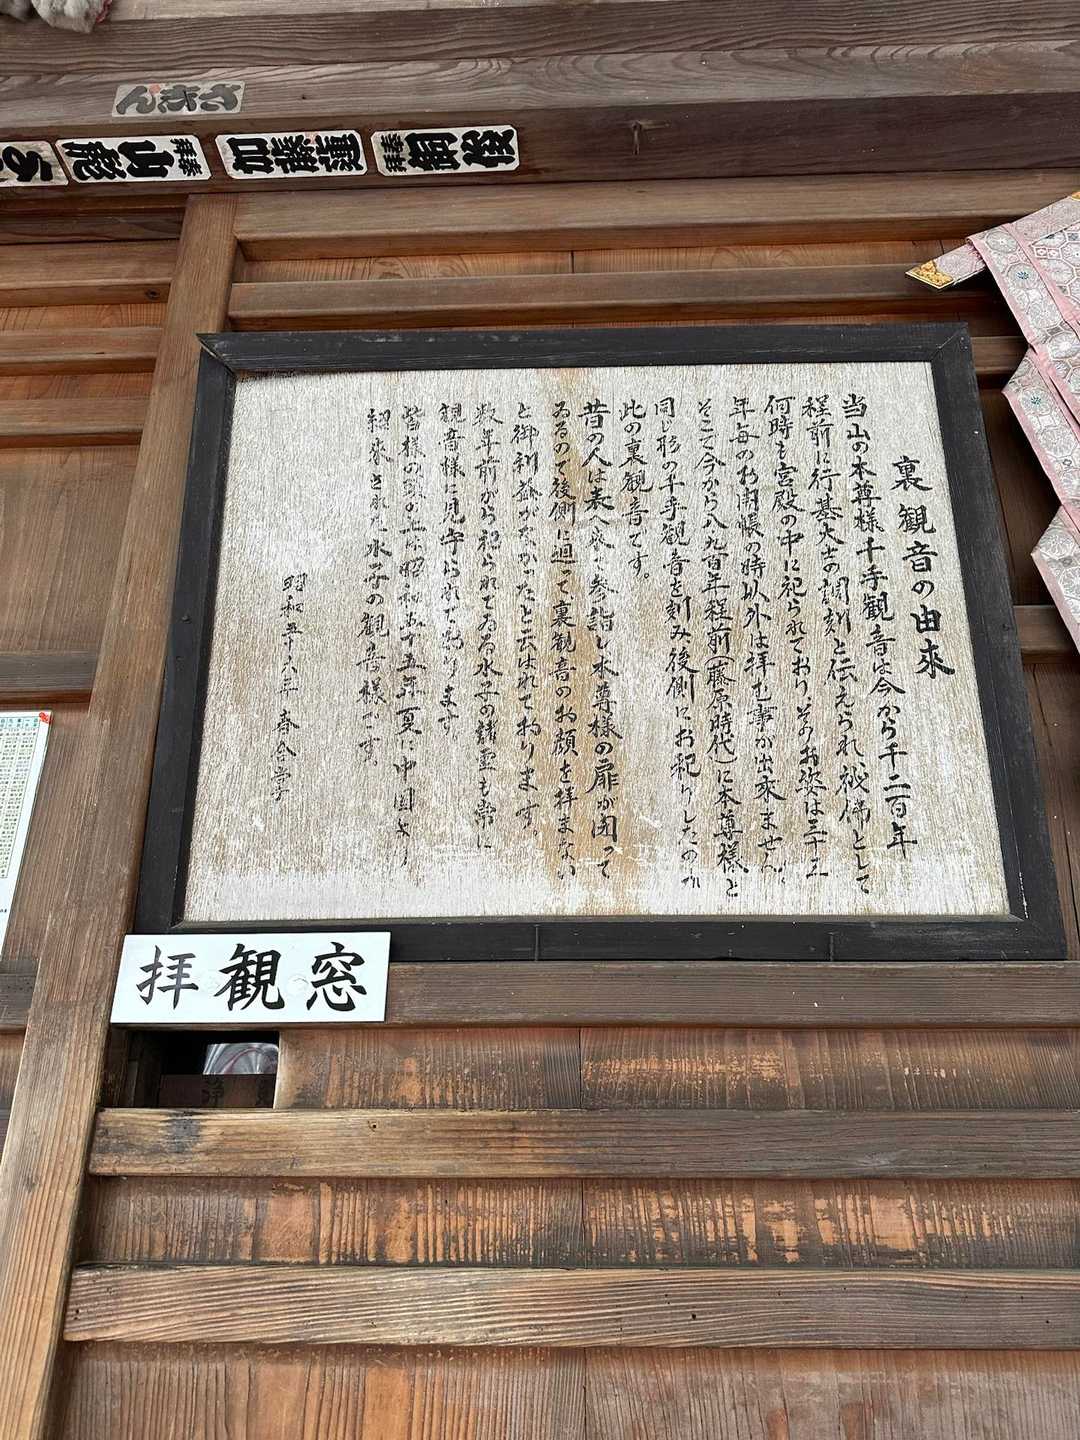 裏観音の由来
当山の本尊様千手観音は今から千二百年
程前に行基大士の調刻と伝えられ、秘佛として
何時も宮殿の中に祀られており、そのお姿は三十三
年毎のお開帳の時以外は拝む事が出来ません。
そこで今から八九百年程前(藤原時代)に本尊様と
同じ形の千手観音を刻み後側にお祀りしたのが
此の裏観音です。
昔の人は表へ参詣し本尊様の扉が閉って
ゐるので後側に廻って裏観音のお顔を拝まない
と御利益がなかったと云はれて拘ります。
数年前から祀られてゐる水子の諸霊も常に
観音様に見守られて拘ります
皆様の頭の上は昭和五十五年夏に中国より
招来された水子の観音様です。
昭和五十六年 春合学
拝観窓
加藤蓮